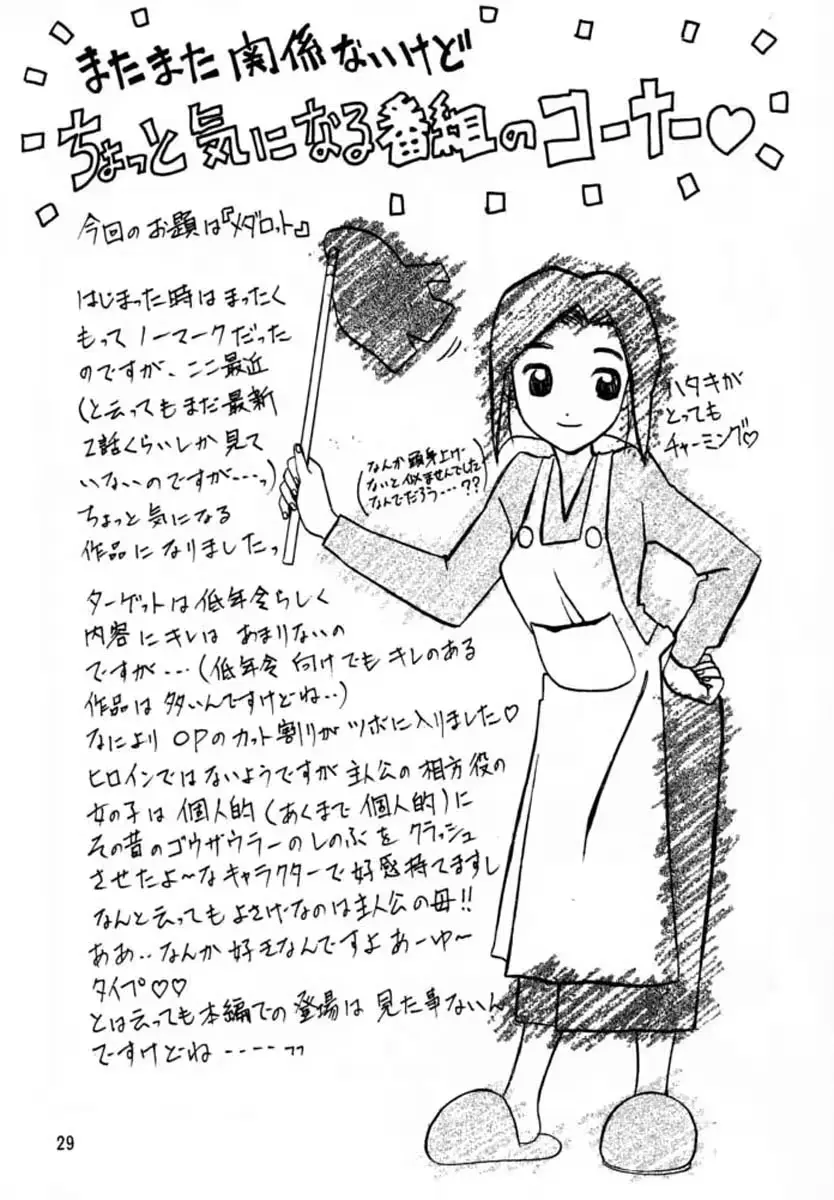 またまた関係ないけど
ちょっと気になる番組のコーナー♡
今回のお題は『メダロット』
はじまった時はまったく
もってノーマークだった
のですが、ここ最近
(と云ってもまだ最新
2話くらいしか見て
いないのですが---っ)
ちょっと気になる
作品になりましたっ
ターゲットは低年令らしく
内容にキレはあまりないの
ですが・・・(低年令向けでもキレのある
作品は多いんですけどね・・)
なによりOPのカット割りがツボに入りました♡
ヒロインではないようですが主人公の相方役の
女の子は個人的(あくまで個人的)に
その昔のゴウザウラーのしのぶをクラッシュ
させたよ〜なキャラクターで好感持てますし
なんと云ってもよさげなのは主人公の母!!
ああ・・なんか好きなんですよあーゆ〜
タイプ♡♡
とは云っても本編での登場は見た事ないん
ですけどね----
(なんか頭身上げ
ないと似ませんでした
なんでだろう---??)
ハタキが
とっても
チャーミング♡
29